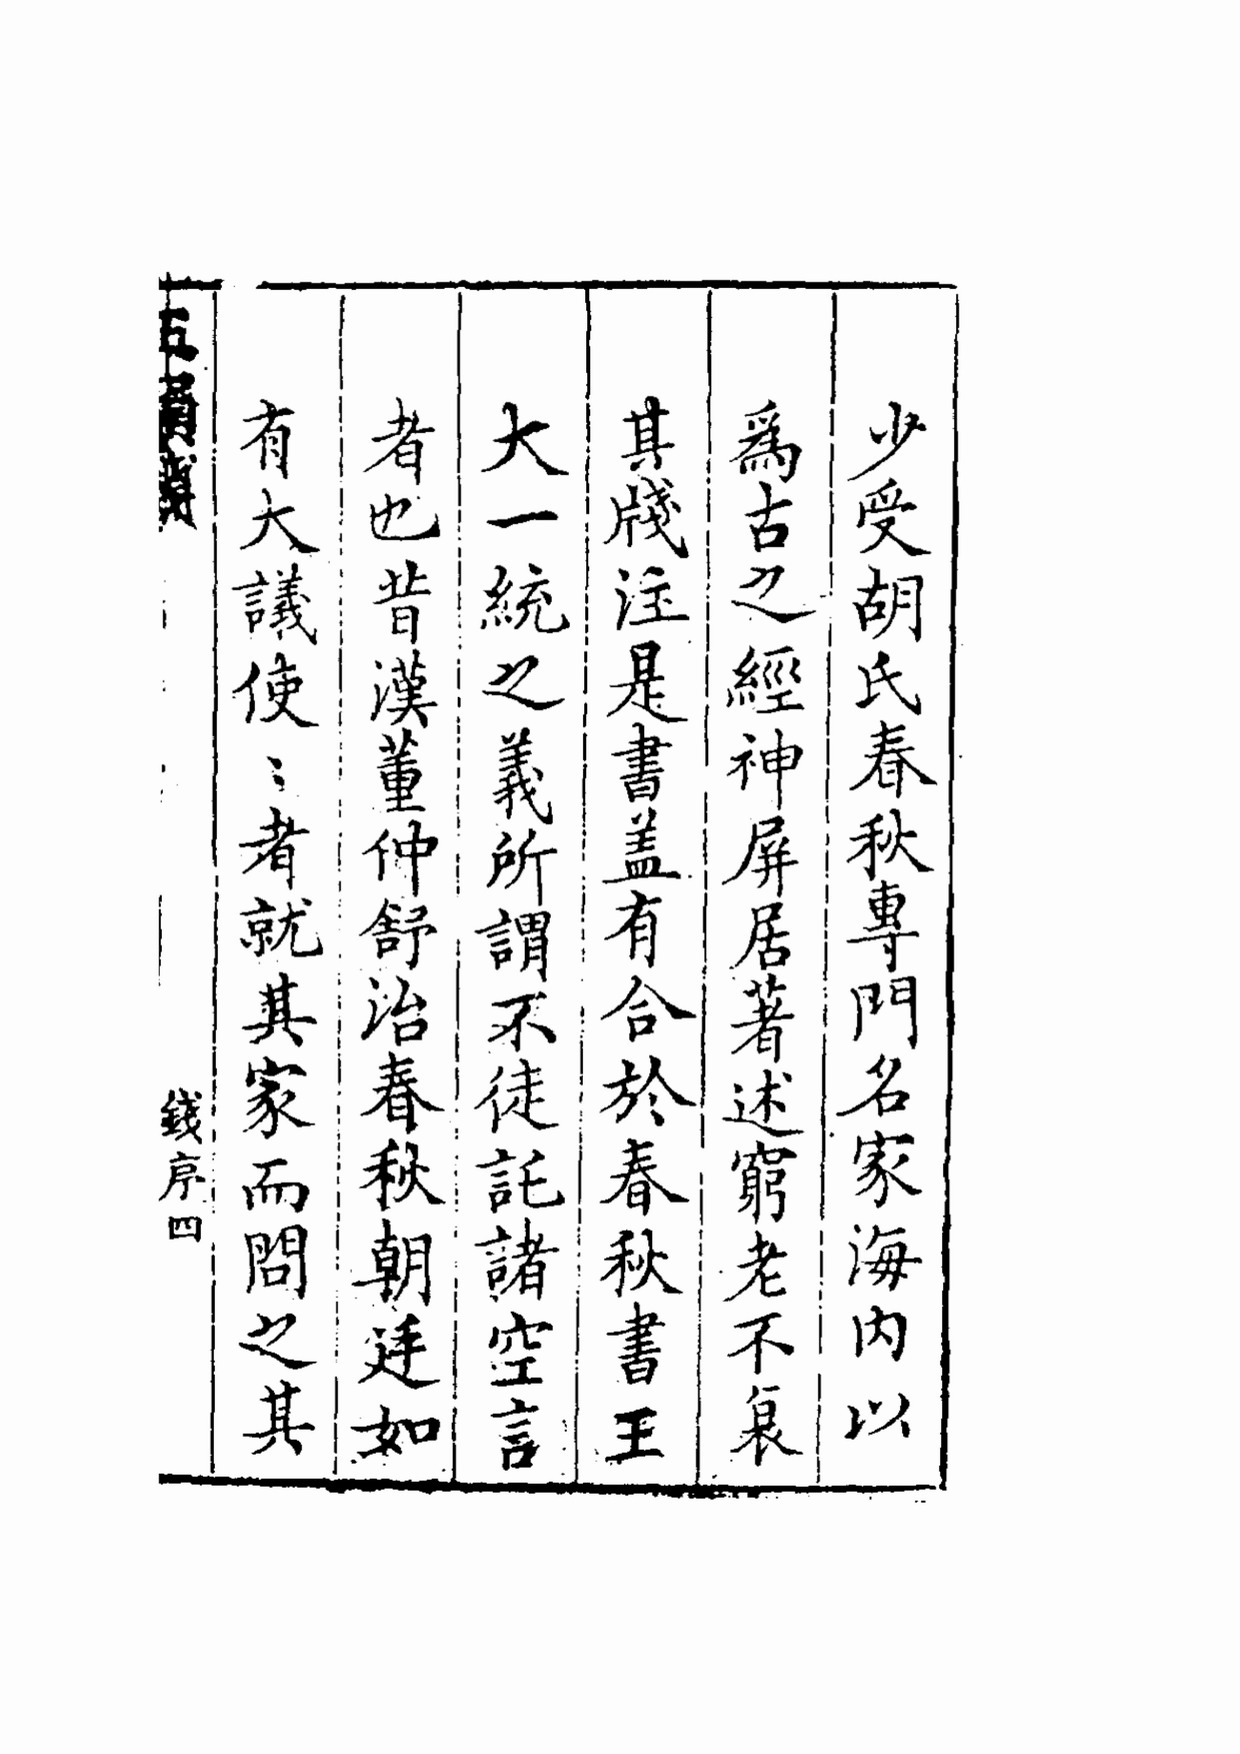 少受胡氏春秋專門名家海内以
爲古之經神屏居著述窮老不衰
其牋注是書盖有合於春秋書王
大一統之義所謂不徒託諸空言
者也昔漢董仲舒治春秋朝廷如
有大議使〻者就其家而問之其
錢序四